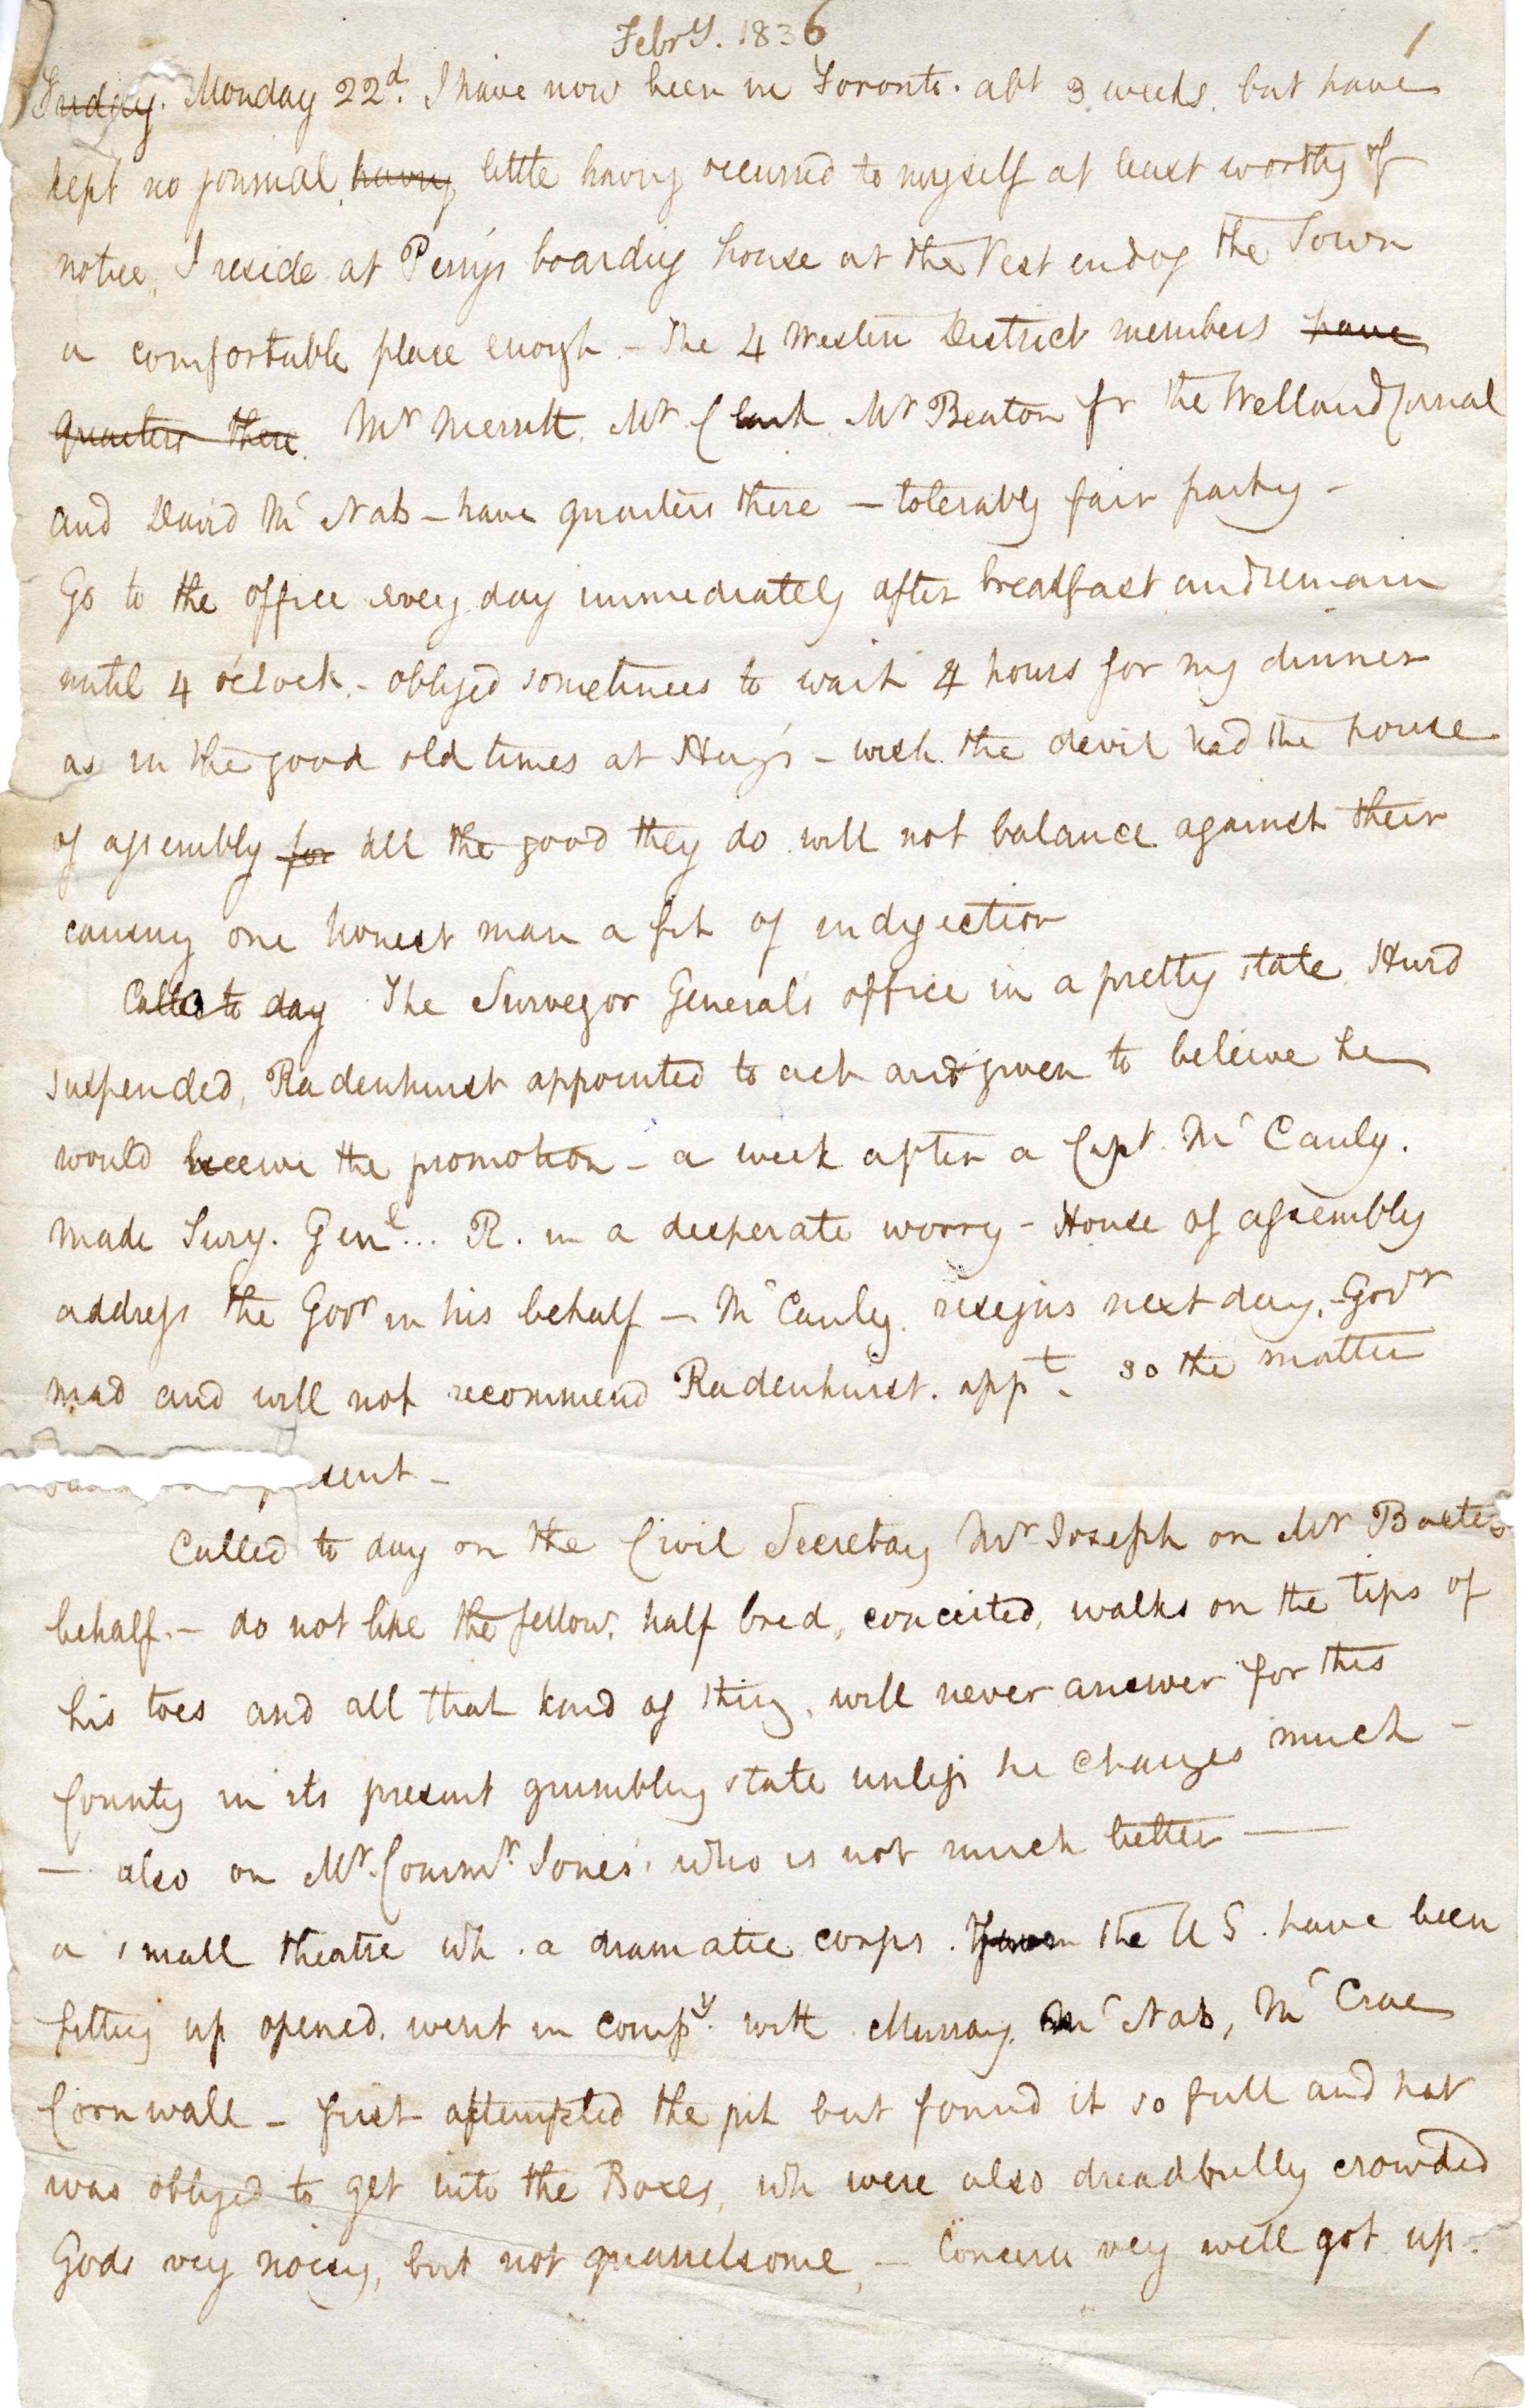 Febry. 1836
1
Friday. Monday 22d. I have now been in Toronto. abt 3 weeks. but have
kept no journal having little having occurred to myself at least worthy of
notice, I reside at Perry's boarding house at the West end of the Town
a comfortable place enough - The 4 Western District members have
quarters there. Mr Merritt. Mr Clark Mr Beaton fr the Welland Canal
and David McNab - have quarters there - tolerably fair party -
Go to the office every day immediately after breakfast and remain
until 4 o'clock. - obliged sometimes to wait 4 hours for my dinner
as in the good old times at - wish the devil had the house
of assembly for all the good they do will not balance against their
causing one honest man a fit of indigestion
Called to day The Surveyor General's office in a pretty state Hurd
suspended, Radenhurst appointed to act and given to believe he
would receive the promotion - a week after a Capt. McCauly.
made Surv. Genl... R. in a desperate worry - House of assembly
address the Govr in his behalf - McCauly. resigns next day. - Govr
mad and will not recommend Radenhurst. appt - so the matter
sent -
Called to day on the Civil Secretary Mr Joseph on Mr
behalf. - do not like the fellow. half bred, conceited, walks on the tips of
his toes and all that kind of thing, will never answer for this
County in its present grumbling state unless he changes much -
- also on Mr. Commr. Jones' who is not much better -
a small theatre wh. a dramatic corps. from the US. have been
fitting up opened. went in compy. with Murray, McNab, McCrae
Cornwall - first attempted the pit but found it so full and hot
was obliged to get into the Boxes, wh were also dreadfully crowded
Gods very noisy, but not quarrelsome, - Concern very well got up.